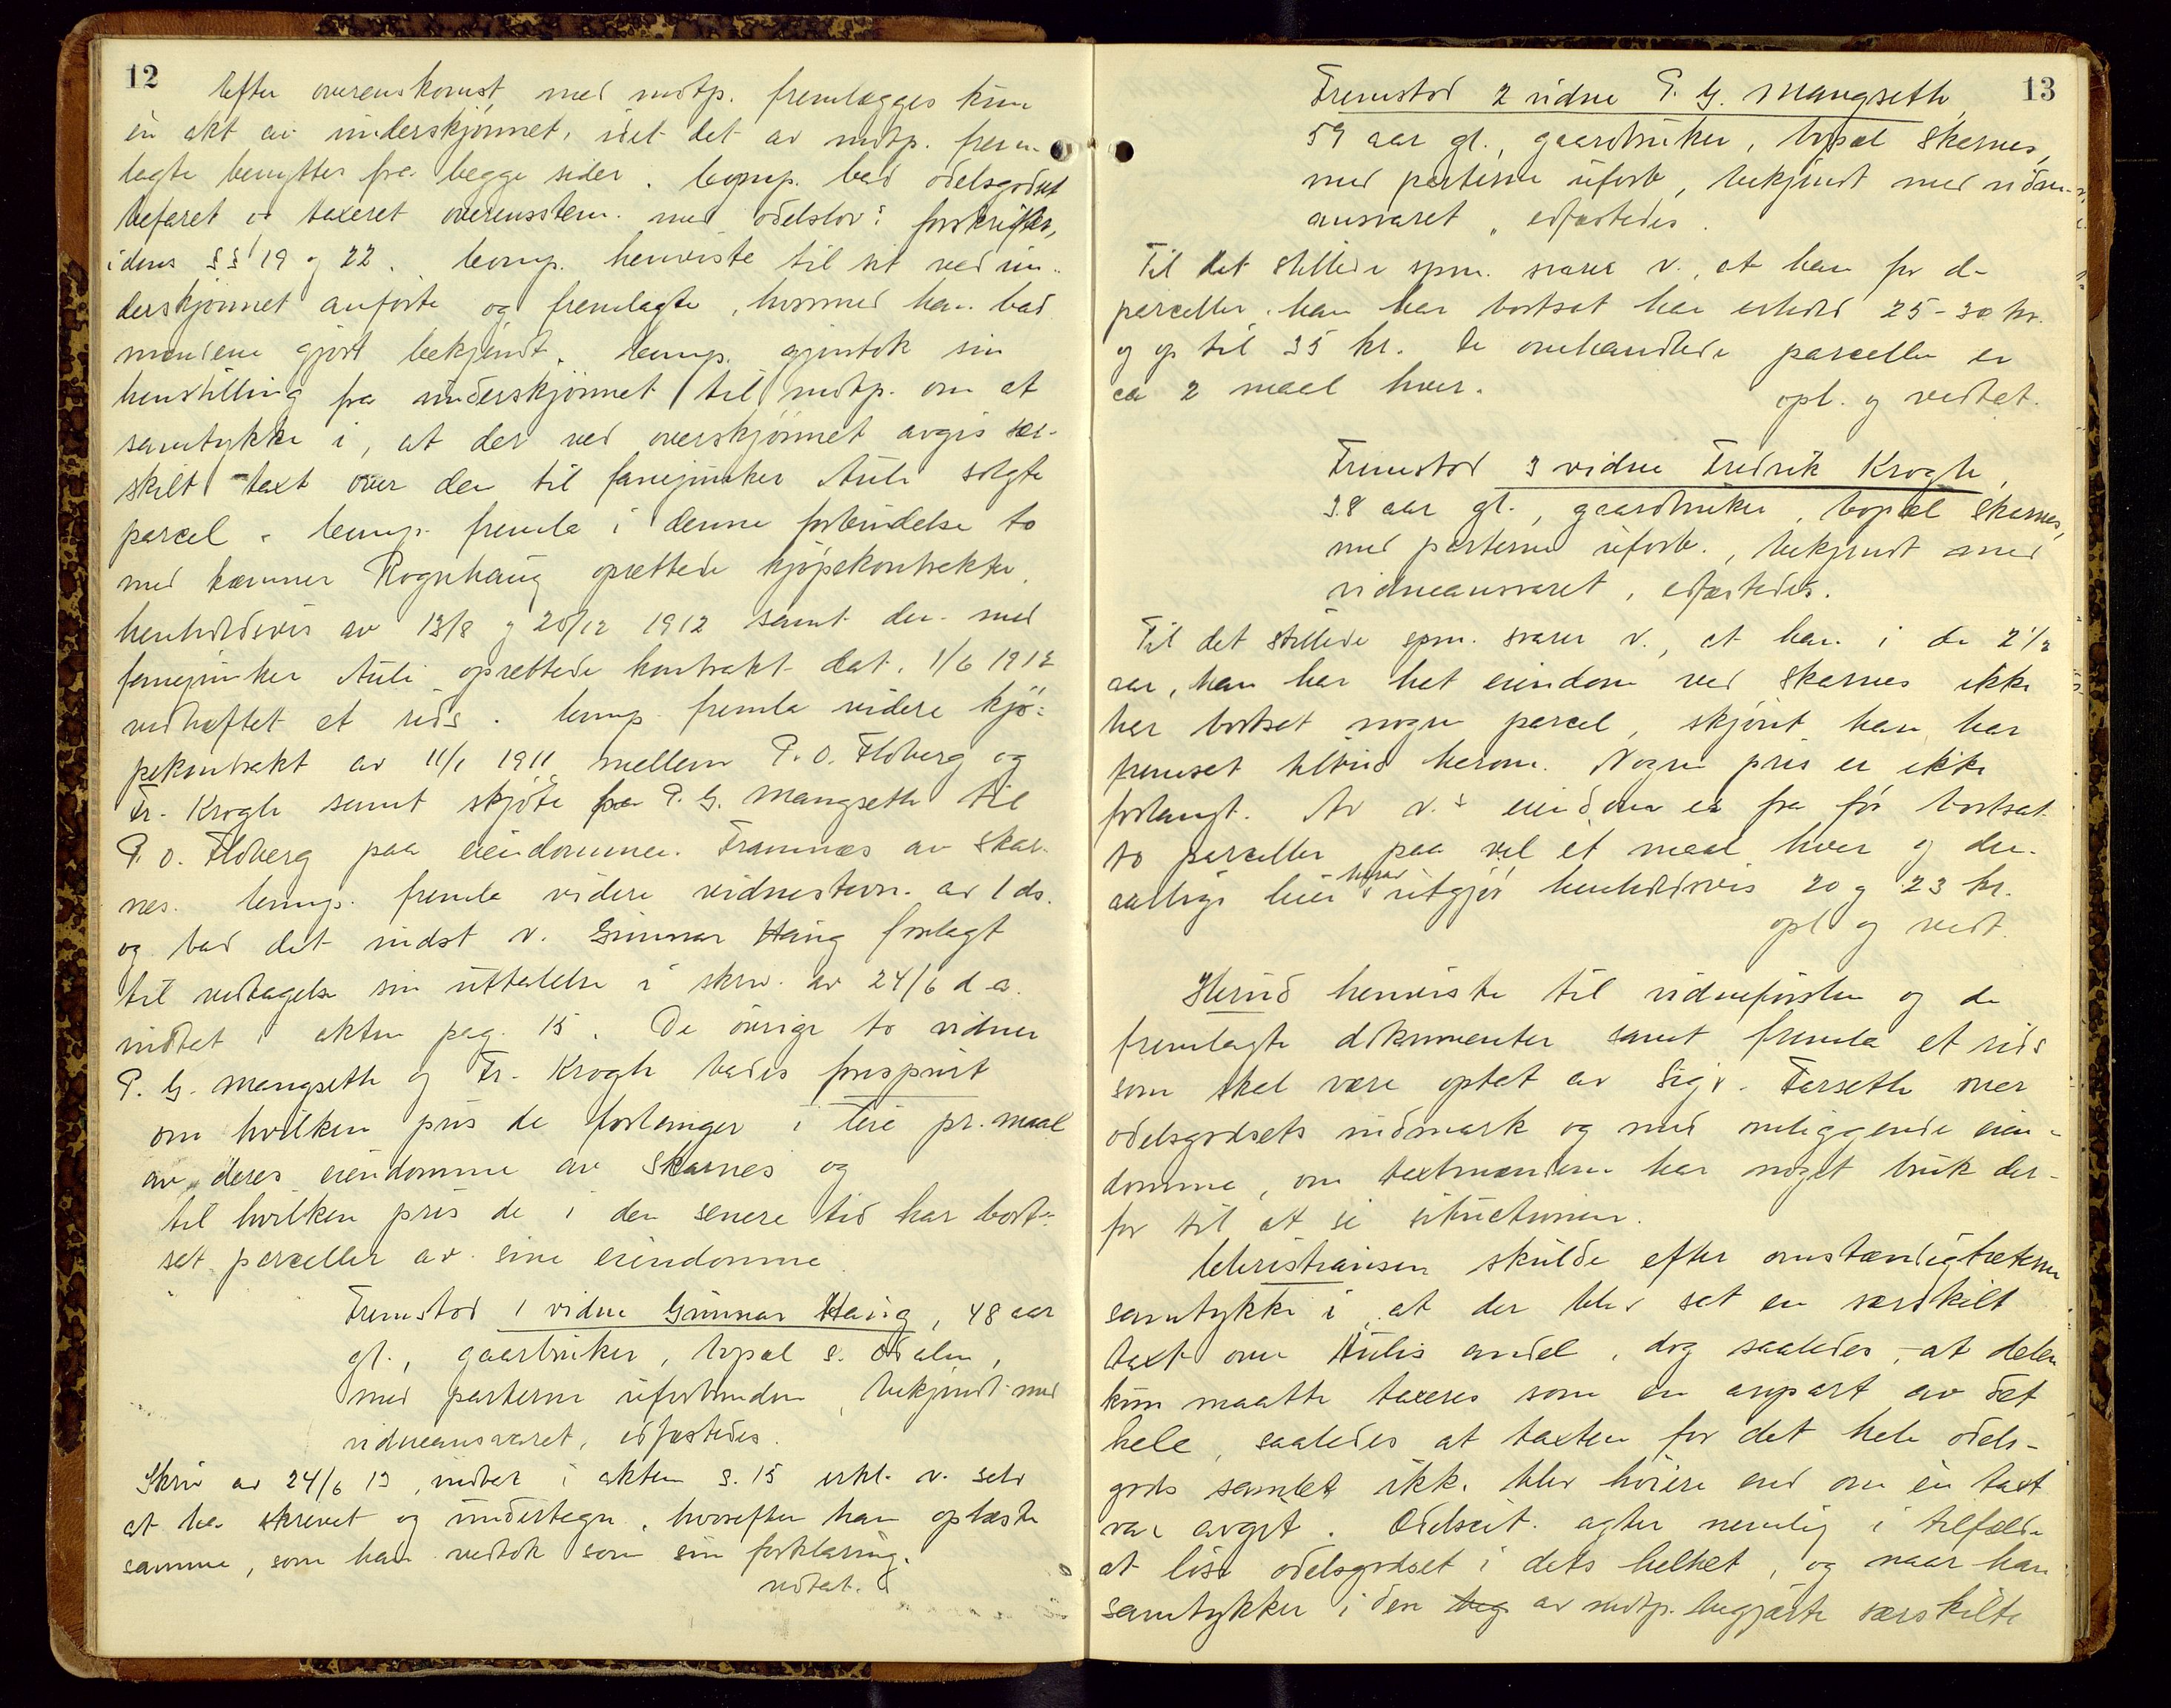 12
Efter overenskomst med motp. fremlægges kun
én akt av underskjønnet, idet det av motp. frem-
lagte benyttes fra begge sider. Comp. bad odelsgodset
befaret og taxeret overensstem. med odelslov: forskrifter,
i dens §§ 19 og 22. Comp. henviste til sit ved un-
derskjønnet anførte og fremlagte, hvormed han bad
mændene gjort bekjendt. Comp. gjentok sin
henstilling fra underskjønnet til motp. om at
samtykke i, at der ved overskjønnet avgis sær-
skilt taxt over den til fanejunker Auli solgte
parcel. Comp. fremla i denne forbindelse to
med kæmner Rognhaug oprettede kjøpekontrakter
henholdsvis av 13/8 og 20/12 1912 samt den med
fanejunker Auli oprettede kontrakt dat. 1/6 1912
vedhæftet et rids. Comp. fremla videre kjø-
pekontrakt av 11/1 1911 mellem P. O. Floberg og
Fr. Krogh samt skjøte fra P. G. Mangseth til
P. O. Floberg paa eiendommen Framnæs av Skar-
nes. Comp. fremla videre vidnestevn. av 1 ds.
og bad det indst v. Gunnar Haug forelagt
til vedtagelse sin uttalelse i skriv. av 24/6 d. a.
indtat i akten pag. 15. De øvrige to vidner
P. G. Mangseth og Fr. Krogh bades forespurt
om hvilken pris de forlanger i leie pr. maal
av deres eiendomme av Skarnes og
til hvilken pris de i den senere tid har bort-
sat parceller av sine eiendomme.
Fremstod 1 vidne Gunnar Haug, 48 aar
gl., gaarbruker, bopæl S. Odalen,
med parterne uforbunden, bekjendt med
vidneansvaret, edfæstedes.
Skriv av 24/6 13, indtat i akten s. 15 erkl. v. selv
at ha skrevet og undertegn., hvorefter han oplæste
samme, som han vedtok som sin forklaring.
vedtat.
13
Fremstod 2 vidne P. G. Mangseth,
59 aar gl., gaardbruker, bopæl Skarnes,
med parterne uforb, bekjendt med vidne-
ansvaret, edfæstedes.
Til det stillede spm. svarer v., at han for de
parceller, han har bortsat har erholdt 25-30 kr.
og op til 35 kr. De omhandlede parceller er
ca 2 maal hver.
opl. og vedtat.
Fremstod 3 vidne Fredrik Krogh,
38 aar gl., gaardbruker, bopæl Skarnes,
med parterne uforb., bekjendt med
vidneansvaret, edfæstedes.
Til det stillede spm. svarer v., at han i de 2 1/2
aar, han har hat eiendom ved Skarnes ikke
har bortsat nogen parcel, skjønt han har
fremsat tilbud herom. Nogen pris er ikke
forlangt. Av v.s eiendom er fra før bortsat
to parceller paa vel et maal hver og den
aarlige leie herav utgjør henholdsvis 20 og 23 kr.
opl og vedt.
Herud henviste til vidneførslen og de
fremlagte dokumenter samt fremla et rids
som skal være optat av Sigv. Farseth over
odelsgodsets indmark og med omliggende eien-
domme, om taxtmændene har noget bruk der-
for til at se situationen.
Christiansen skulde efter omstændigheterne
samtykke i, at der blev sat en særskilt
taxt over Aulis andel, dog saaledes, at delen
kun maatte taxeres som en anpart av det
hele, saaledes at taxten for det hele odels-
gods samlet ikke blev høiere end om én taxt
var avgit. Odelscit. agter nemlig i tilfælde
at løse odelsgodset i dets helhet, og naar han
samtykker i den beg av motp. begjærte særskilte